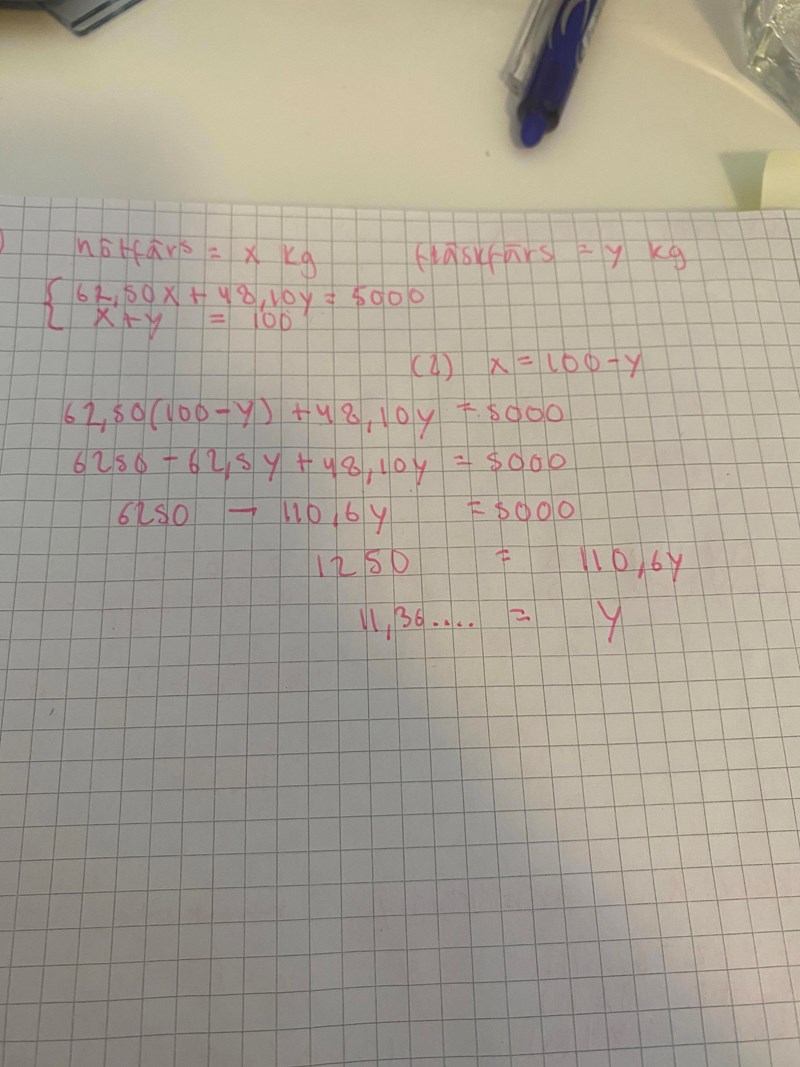 nötfärs = x kg fläskfärs = y kg
62,50x + 48,10y = 5000
x + y = 100
(2) x = 100 - y
62,50(100 - y) + 48,10y = 5000
6250 - 62,5y + 48,10y = 5000
6250 - 110,6y = 5000
1250 = 110,6y
11,36.... = y